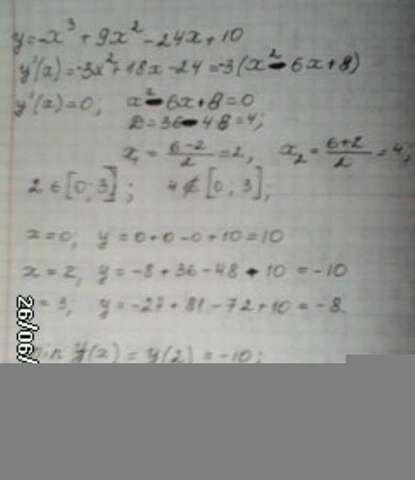 y=-x³+9x²-24x+10
y'(x)=-3x²+18x-24=-3(x²-6x+8)
y'(x)=0; x²-6x+8=0
D=36-48=4;
x₁=(6-2)/2=2, x₂=(6+2)/2=4;
2∈[0;3]; 4∉[0;3];
x=0, y=0+0-0+10=10
x=2, y=-8+36-48+10=-10
=3, y=-27+81-72+10=-8.
min y(x)=y(2)=-10;
26/06/